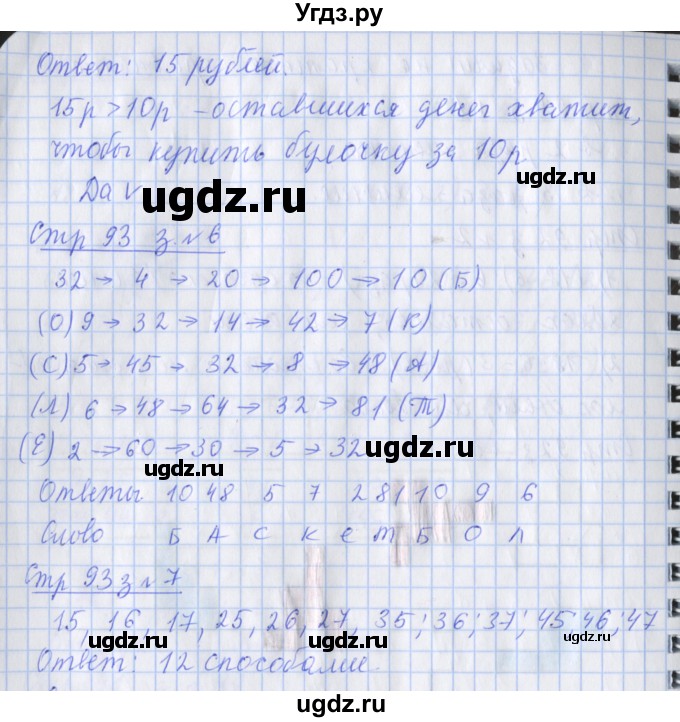 Угдз.ру
Ответ: 15 рублей.
15р > 10р - оставшихся денег хватит,
чтобы купить булочку за 10р
Да ✓
ugdz.ru
Стр 93 з. № 6
32 → 4 → 20 → 100 → 10 (Б)
(О) 9 → 32 → 14 → 42 → 7 (К)
(С) 5 → 45 → 32 → 8 → 48 (А)
(Л) 6 → 48 → 64 → 32 → 81 (Т)
(Е) 2 → 60 → 30 → 5 → 32
ugdz.ru ugdz.ru
Ответы 10 48 5 7 2 81 10 9 6
Слово Б А С К Е Т Б О Л
Стр 93 з № 7
15, 16, 17, 25, 26, 27, 35, 36, 37, 45 46, 47
ugdz.ru ugdz.ru
Ответ: 12 способами.
ugdz.ru